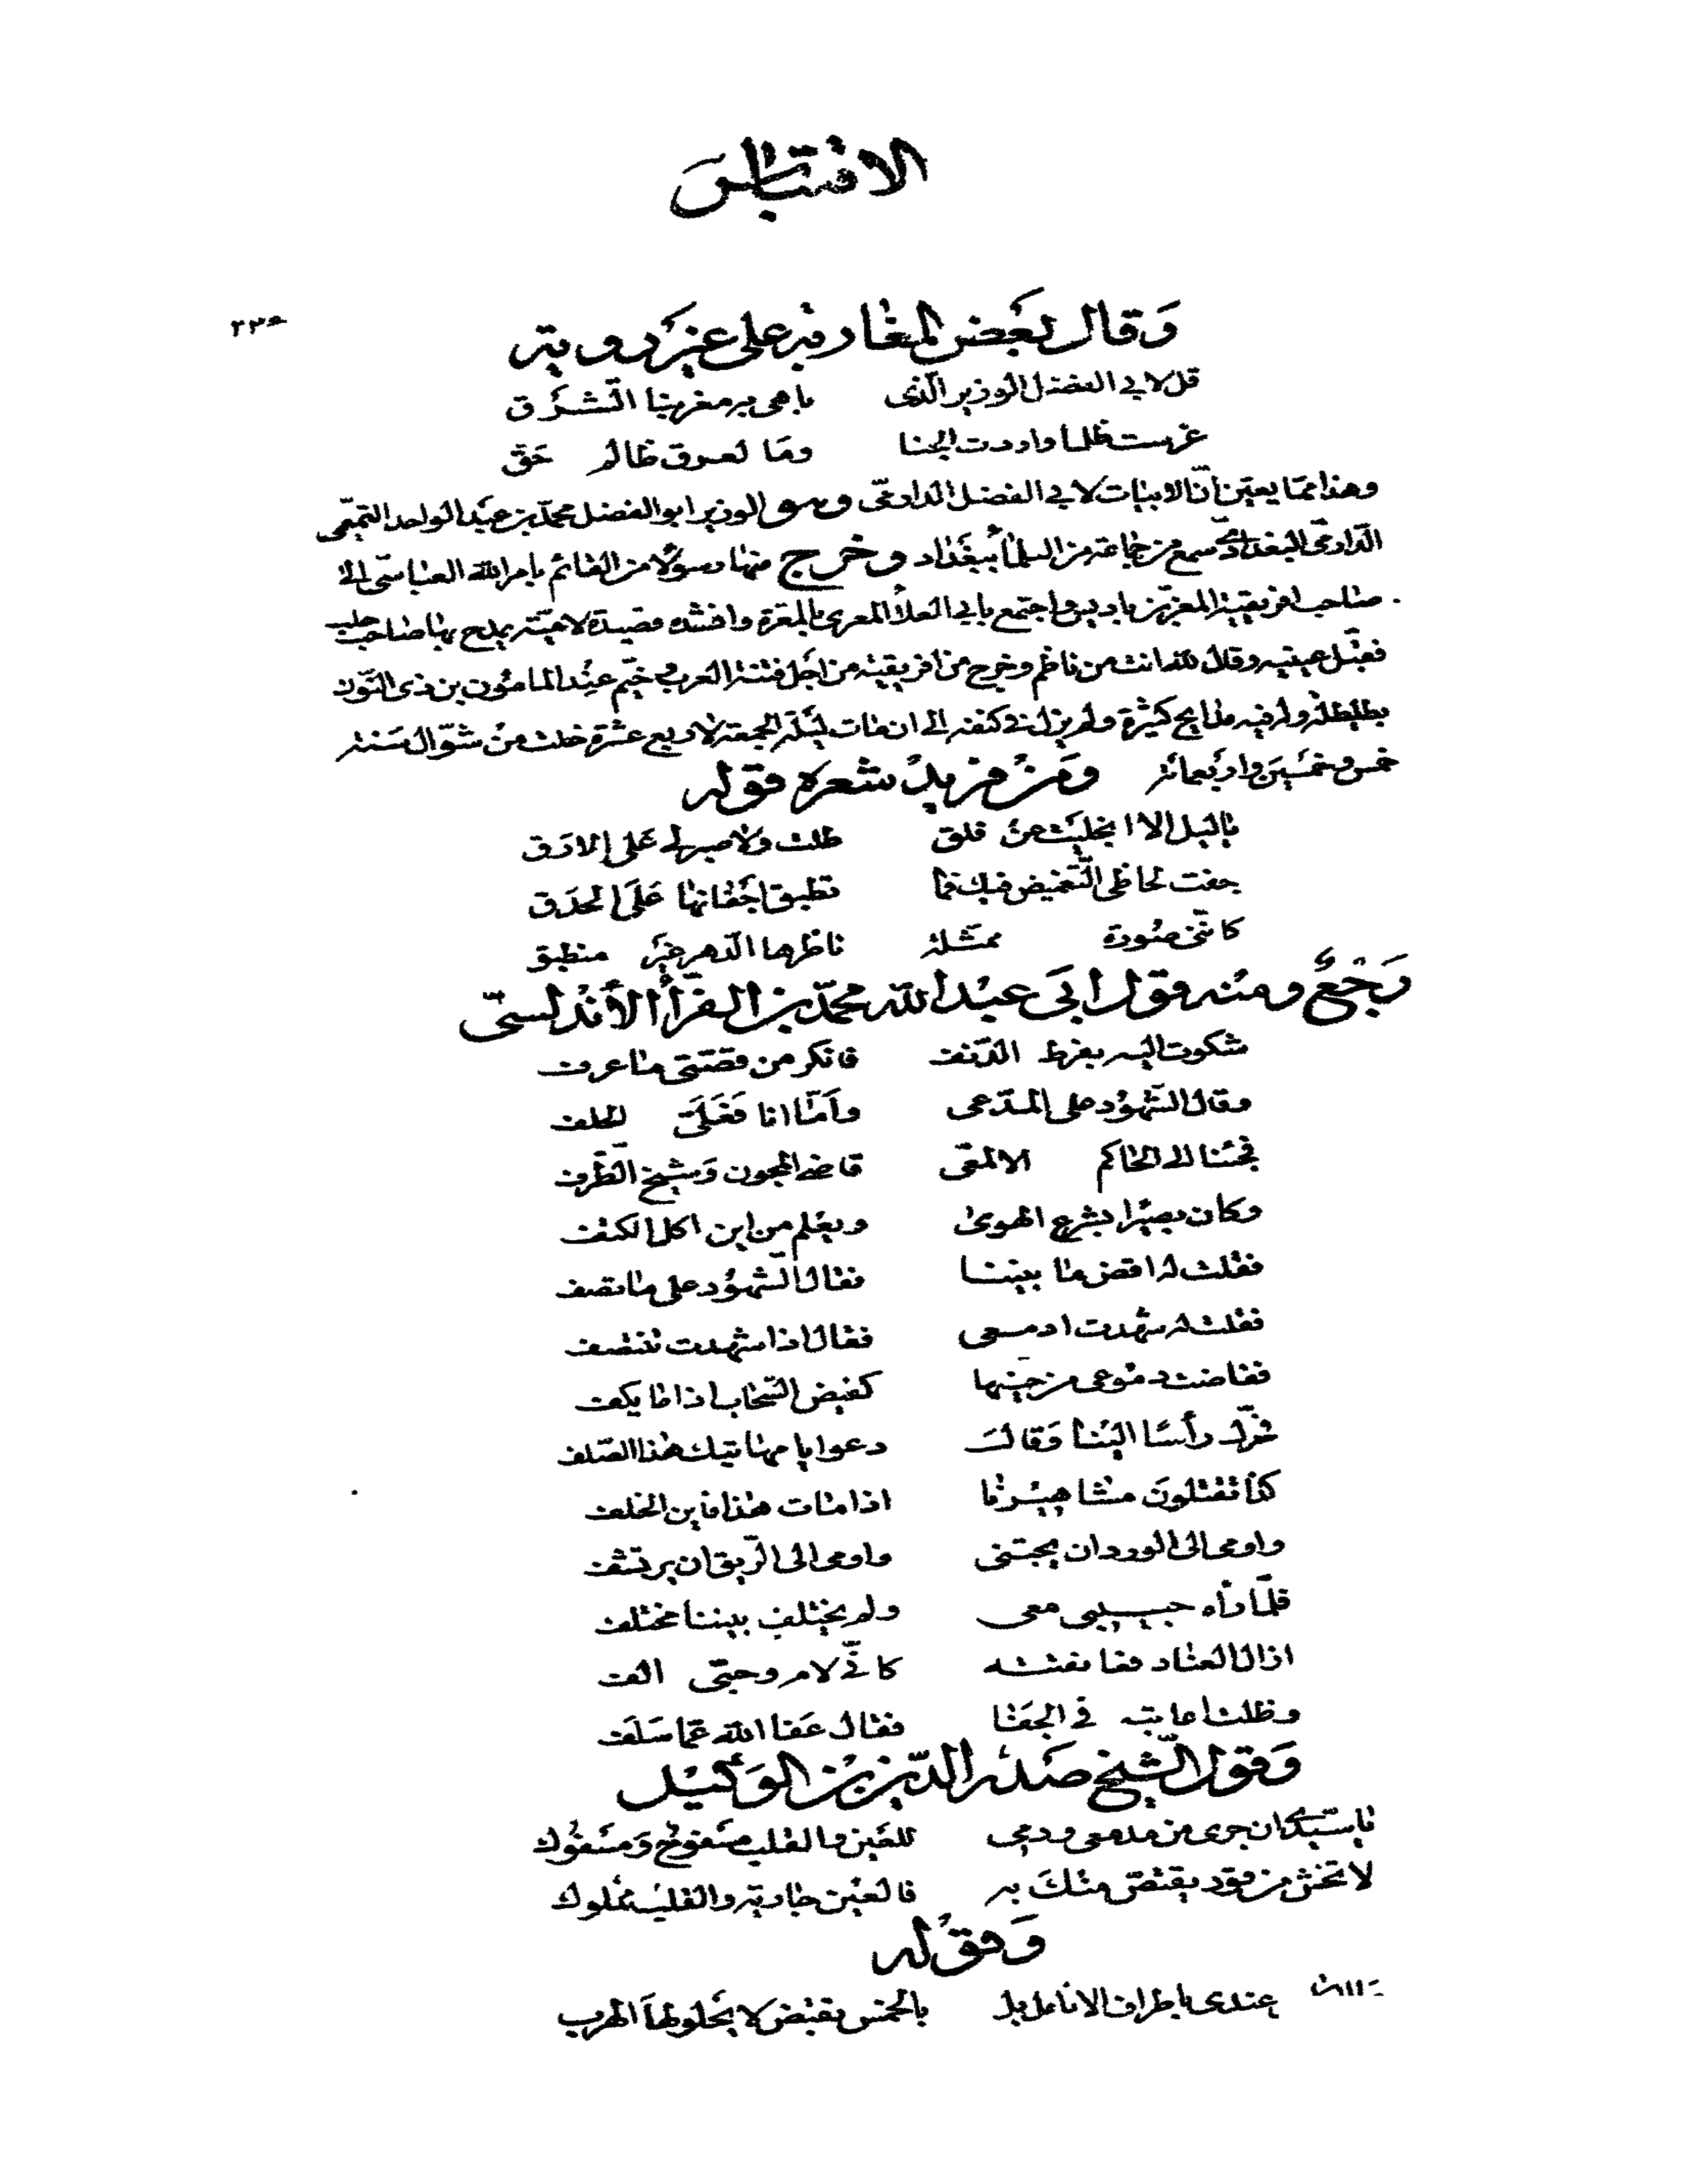 الاقتباس
وَقال بَعض المغاربه على غيَر رويته
قل لابي الفضل الوزير الّذى باهى به مغربنا الشَّرق
غرست ظلما واردت الجنا ومَا لعرق ظالم حَقّ
وهذا ممّا يعيّن أنّ الابيات لابي الفضل الدارمّى وهو الوزير ابو الفضل محمّد بن عبَد الواحد التّميمّى
الدّارمّى البغدادىّ سمع من جماعة من العلماء ببغَداد وخرج منها رسوُلا من القائم بامر الله العباسّى الى
صاحب افريقية المعزّبن باديس واجتمع بابي العلاء المعرى بالمعّرة وانشده قصيدة لاميّته يمدح بها صاحب حلب
فقبّل عينيه وقال لله انت من ناظم وخرج من افريقيته من اجل فتنة العرب وخيّم عنِد المامون بن ذى النّون
بطليطلة وله فيه مدايح كثيرة ولم يزل في كنفه الى ان مات ليَلة الجمعة لاربع عشرة خلت من شوّال سَنة
خمس وخمسيَن واربَعمائة وَمن مزيد شعره قوله
ياليل الا انجليَت عن فلق طلت ولا صبر لي عَلى الارَق
جفت لحاظى التّغميض فيك فما تطبق اجَفانها عَلَى الحدَق
كانّنى صورة ممثّلة ناظرها الدّهر غيَر منطبق
رَجْعٌ ومنه قول ابَى عبْد الله محمّد بن الفرّاء الأندلسىّ
شكوت اليه بفرط الدّنف فانكر من قصّتى ما عرف
وقال الشّهوُد على المدّعى وأمّا انا فَعَلَىّ الحلف
فجئنا الى الحاكم الالمعّى قاضى المجون وَشيخ الظّرف
وكان بصيرا بشرع الهوىٰ ويعْلم من اين اكل الكتف
فقلت له اقض ما بيننا فقال الشّهوُد على ما تصف
فقلت له شهدت ادمعى فقال اذا شهدت تنتصف
ففاضت دموعى من حينها كفيض السّحاب اذا ما يكف
فحرّك رأسًا الينا وَقال دعوا يا مهاتيك هذا الصّلف
كذا تقتلونَ مشاهيرنا اذا مات هذا فاين الخلف
واومى الى الورد ان يجتنى واومى الى الرّيق ان يرتشف
فلمّا رأه حبيبى معى ولم يختلف بيننا مختلف
ازال العناد فعانقته كانّي لام وحبّى الف
وظلت اعاتبه في الجفَا فقال عَفا الله عمّا سَلَف
وَقول الشّيخ صَدر الدّين بن الوَكيْل
يا سيّدى ان جرى من مدمعى ودمي للعَين والقلب مسَفوح وَمسَفوك
لا تخش من قود يقتصّ منكَ به فالعيَن جارية والقلب مملوك
وَقوُله
عندى باطراف الانامل بل بالخمس تقبض لا يَحلولها الهرب